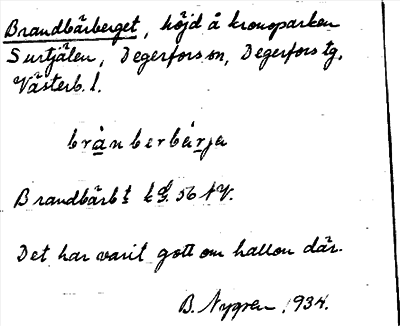 Brandbärberget, höjd å kronoparken
Surtjälen, Degerfors sn, Degerfors tg,
Västerb. l.
brånberbärja
Brandbärbt 56 NV.
Det har varit gott om hallon där.
B. Nygren 1934.